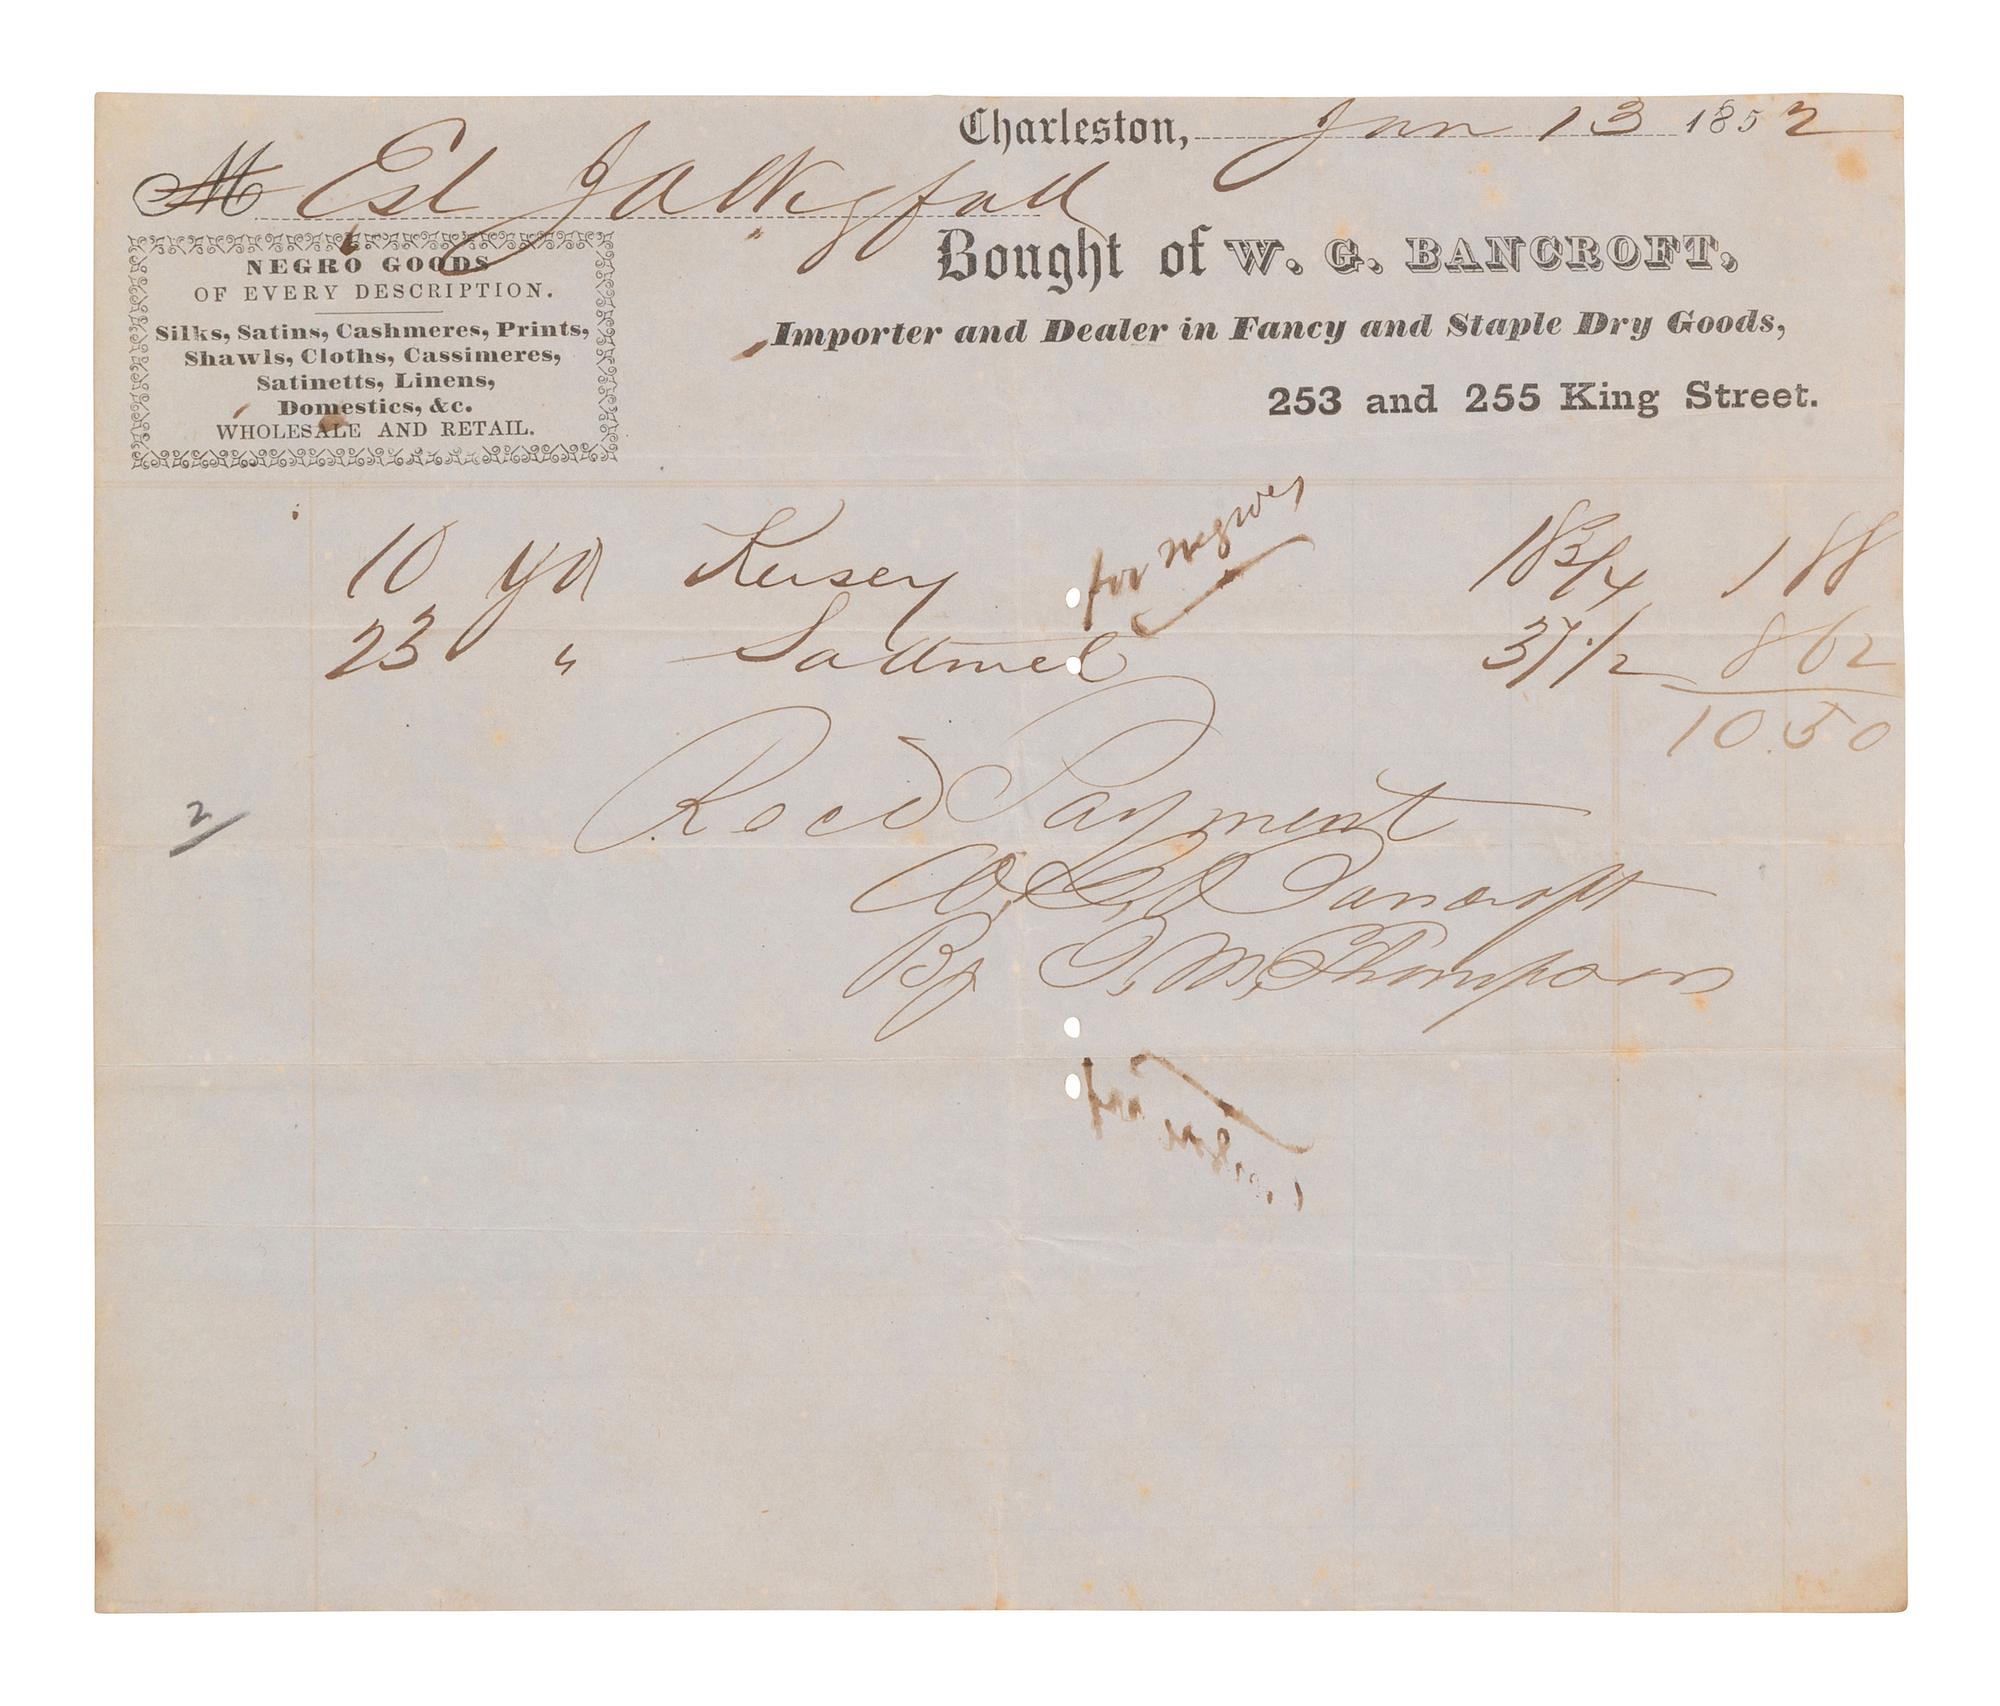 Charleston, Jan 13 1852
M Est J A Wigfall
Bought of W. G. BANCROFT,
Importer and Dealer in Fancy and Staple Dry Goods,
253 and 255 King Street.
NEGRO GOODS
OF EVERY DESCRIPTION.
Silks, Satins, Cashmeres, Prints,
Shawls, Cloths, Cassimeres,
Satinetts, Linens,
Domestics, &c.
WHOLESALE AND RETAIL.
10 yds Kersey for negroes 18 3/4 1 88
23 " Sattinet 37 1/2 8 62
10.50
Recd Payment
2
W. G. Bancroft
By T. M. Thompson